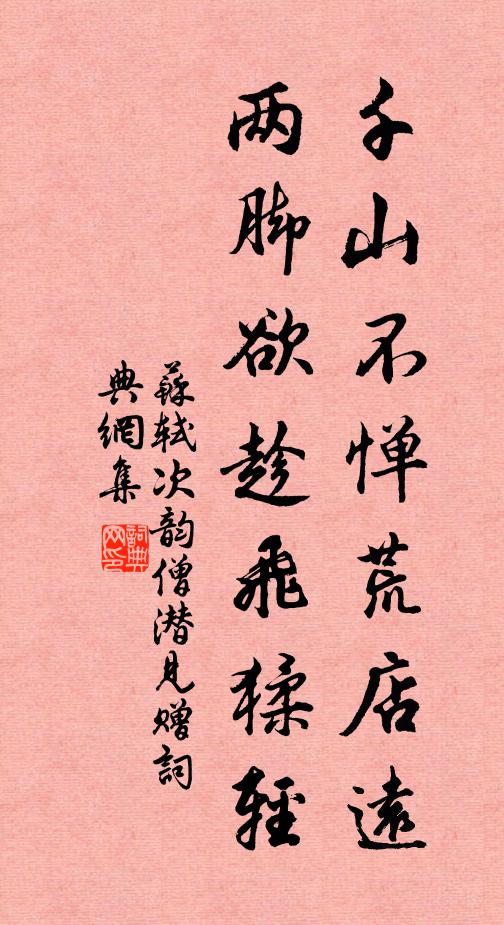 千山不惮荒店遠
两脚欲趁飛猱輕
蘇軾次韵僧潜見贈詞
典網集
詞典网印